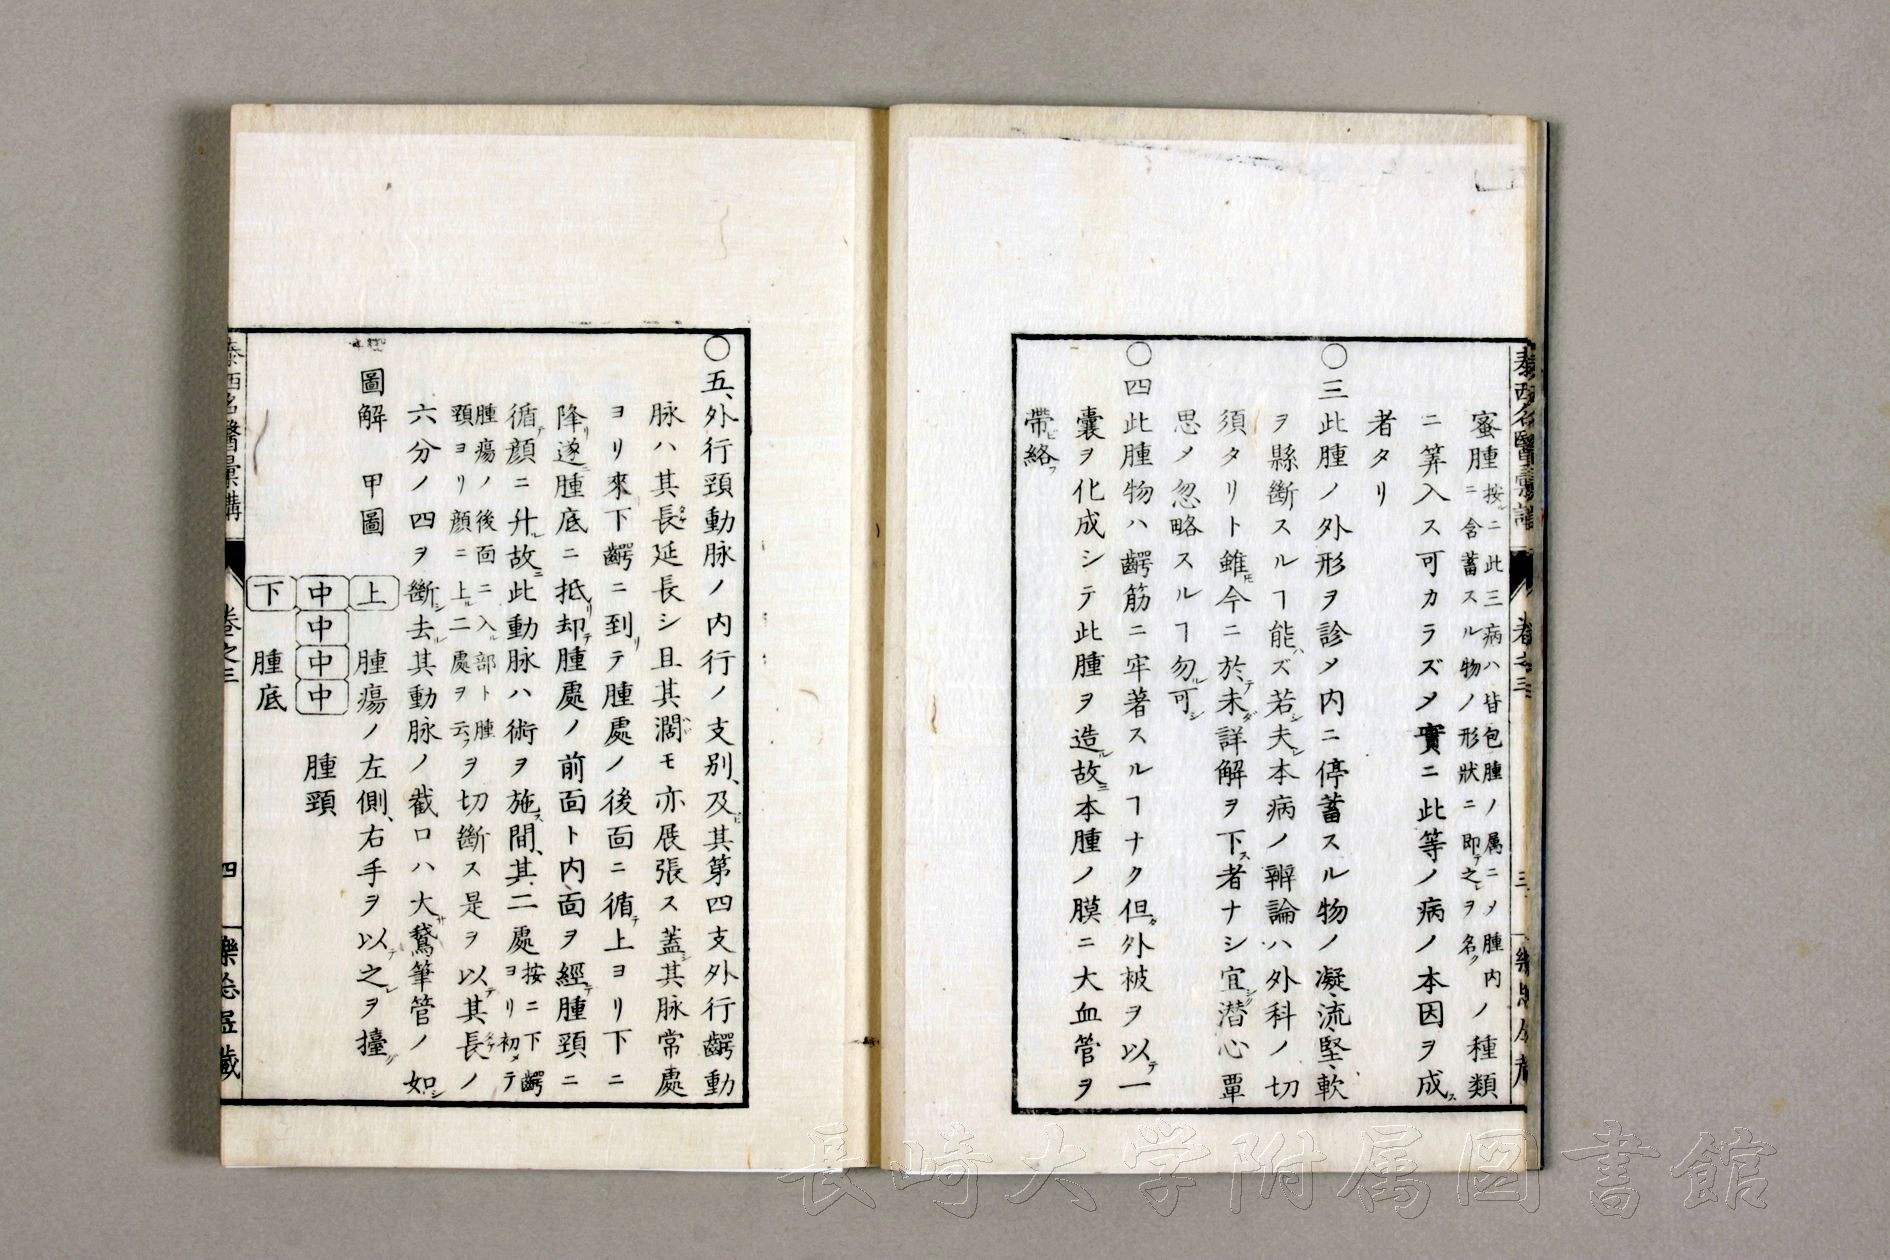 泰西名醫彙講
卷之三
三
蜜腫按ルニ此三病ハ皆包腫ノ属ニメ腫内ノ種類
ニ含蓄スル物ノ形狀ニ即テ之レヲ名ク
ニ筭入ス可カラズメ實ニ此等ノ病ノ本因ヲ成ス
者タリ
〇三此腫ノ外形ヲ診メ内ニ停蓄スル物ノ凝、流、堅、軟
ヲ縣斷スルヿ能ハズ若シ夫レ本病ノ辨論ハ外科ノ切
須タリト雖𪜈今ニ於テ未ダ詳解ヲ下ス者ナシ宜シク潜心覃
思メ忽略スルヿ勿ル可シ
〇四此腫物ハ齶筋ニ牢著スルヿナク但タ外被ヲ以テ一
囊ヲ化成シテ此腫ヲ造ル故ニ本腫ノ膜ニ大血管ヲ
帶ヒ絡フ
〇五、外行頸動脉ノ内行ノ支別、及ヒ其第四支外行齶動
脉ハ其長ケ延長シ且其濶バモ亦展張ス蓋シ其脉常處
ヨリ來下齶ニ到リテ腫處ノ後面ニ循テ上ヨリ下ニ
降リ遂ニ腫底ニ抵リ却テ腫處ノ前面ト内面ヲ經テ腫頸ニ
循テ顔ニ升ル故ニ此動脉ハ術ヲ施ス間、其二處按ニ下齶
ヨリ初メテ
腫瘍ノ後面ニ入ル部ト腫
頸ヨリ顔ニ上ル二處ヲ云フヲ切斷ス是ヲ以テ其長ケノ
六分ノ四ヲ斷シ去レ其動脉ノ截口ハ大サ鵞筆管ノ如シ
圖解 甲圖
上 腫瘍ノ左側、右手ヲ以テ之レヲ擡グ
中 中 中 中 腫頸
下 腫底
泰西名醫彙講
卷之三
四